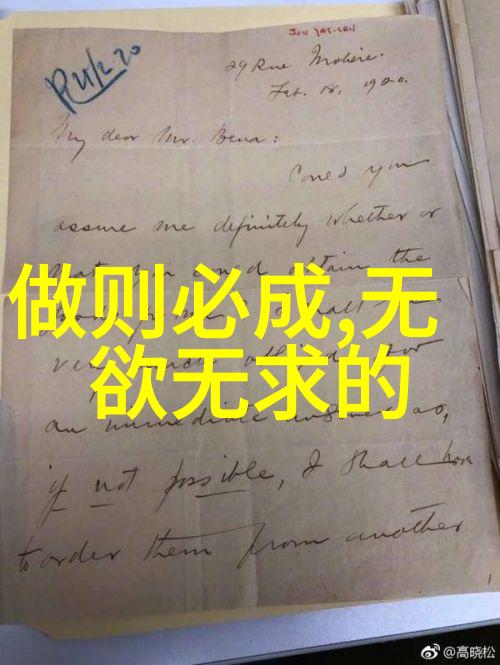 SUN YAT-SEN
R 4/2-20
29 Rue Molière.
Feb. 18, 1920.
My dear Mr. Bena:
Could you
assure me definitely whether or
not you could obtain the
做则必成,无
欲无求的
an immediate answer as,
if not possible, I shall have
to order them from another
@高晓松